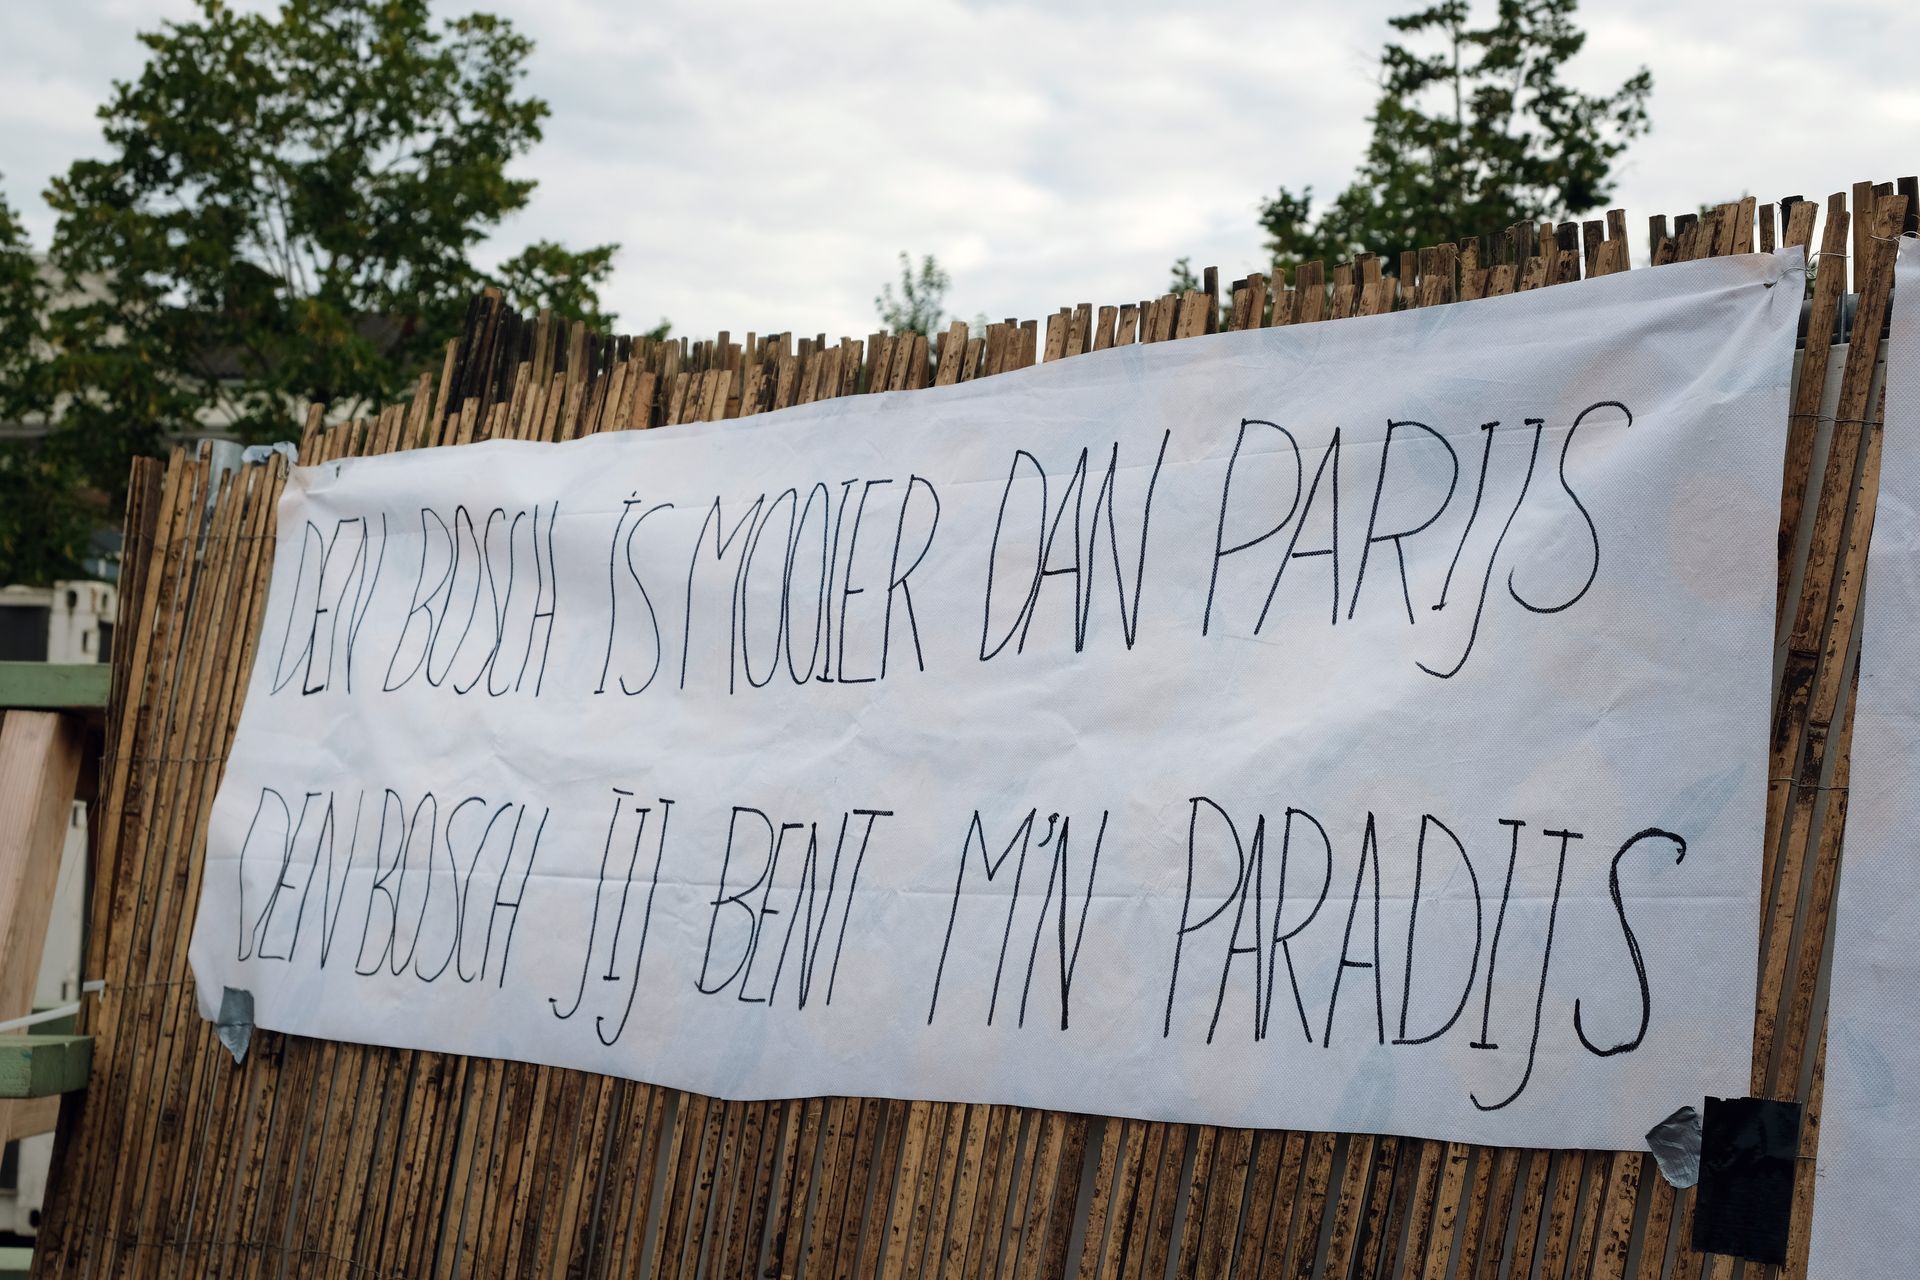 DEN BOSCH IS MOOIER DAN PARIJS
DEN BOSCH JIJ BENT M'N PARADIJS